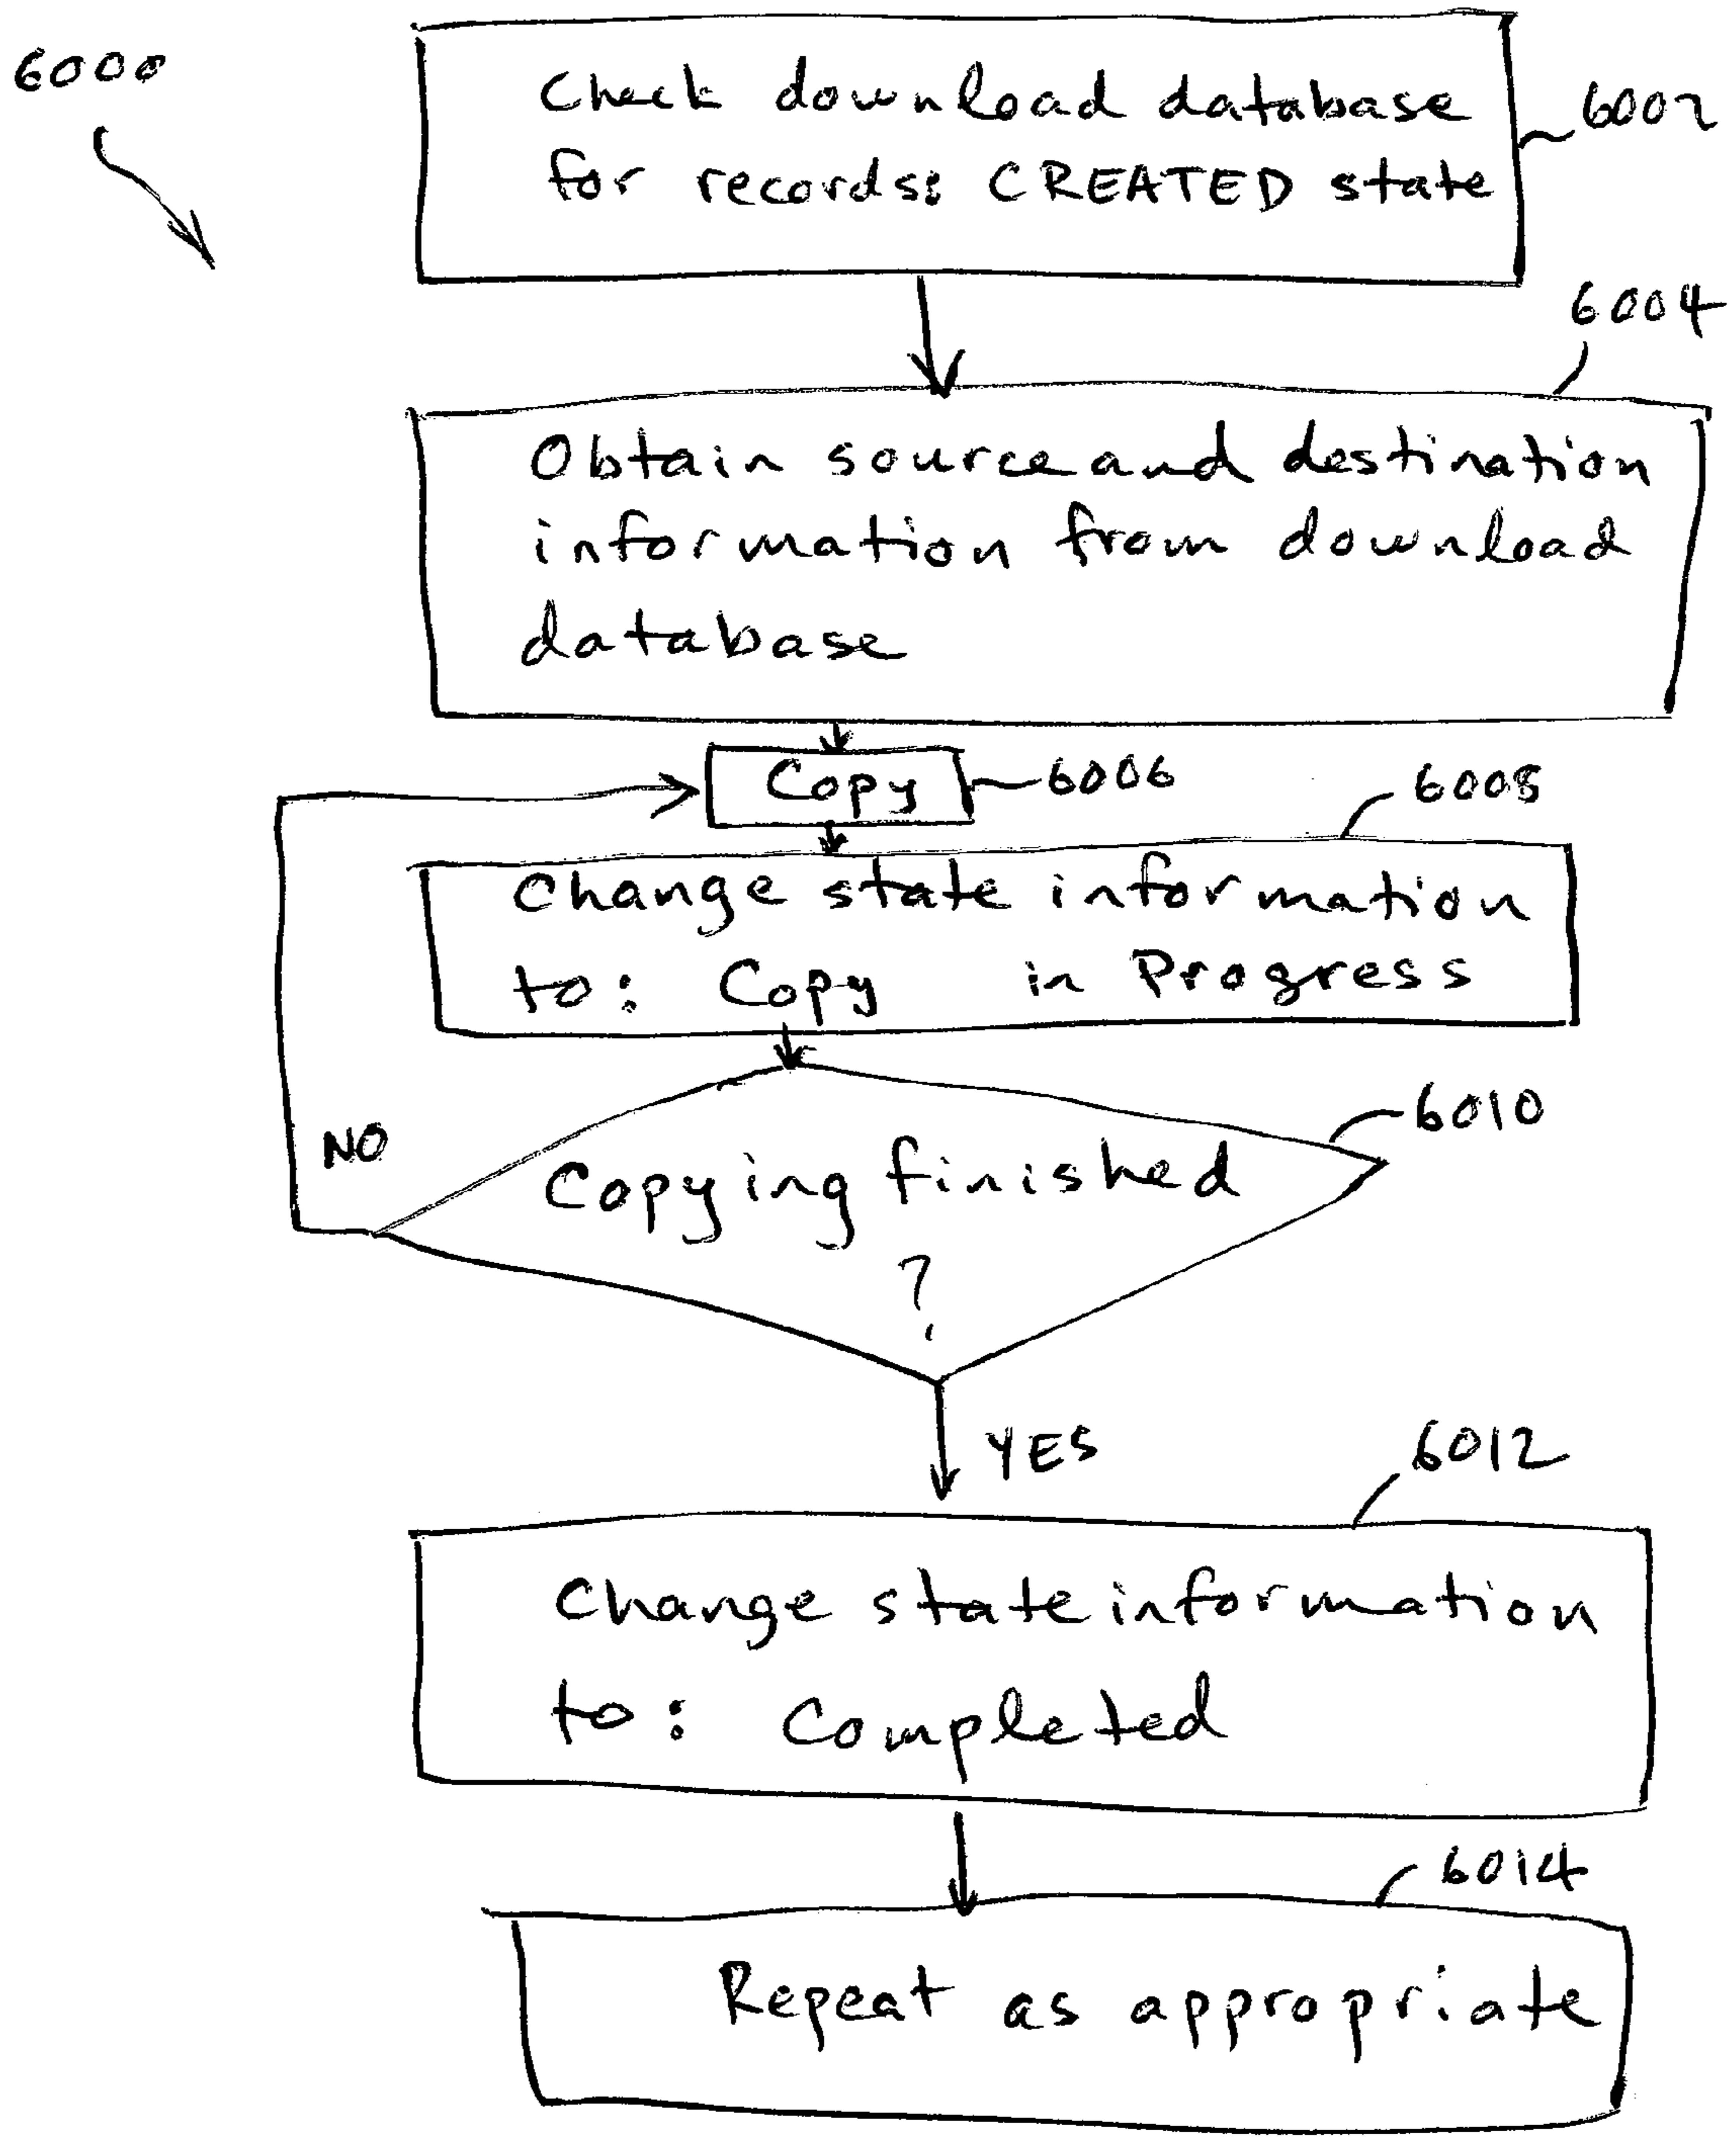 6000
Check download database
for records: CREATED state
6002
6004
Obtain source and destination
information from download
database
Copy
6006
6008
Change state information
to: Copy in Progress
6010
NO
Copying finished
?
YES
6012
Change state information
to: Completed
6014
Repeat as appropriate